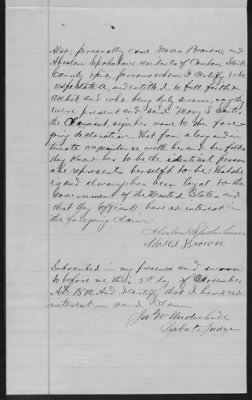 Also personally came Moses Brown and
Absalom residents of Canton, Stark
County Ohio, persons whom I certify to be
respectable and entitled to full faith &
credit and who being duly sworn, say they
were present and saw Mary J. Smith
the Claimant sign her name to the fore
going declaration that from a long and in
timate acquaintance with her and her
they know her to be the identical person
she represents herself to be that she
is and always has been loyal to the
Government of the United States and
that they (affiants) have no interest in
the foregoing claim.
Absalom
Moses Brown
Subscribed in my presence and sworn
to before me this 3d day of November
A.D. 1870. And I certify that I have no
interest in said Claim
Jas W Underhill
Probate Judge